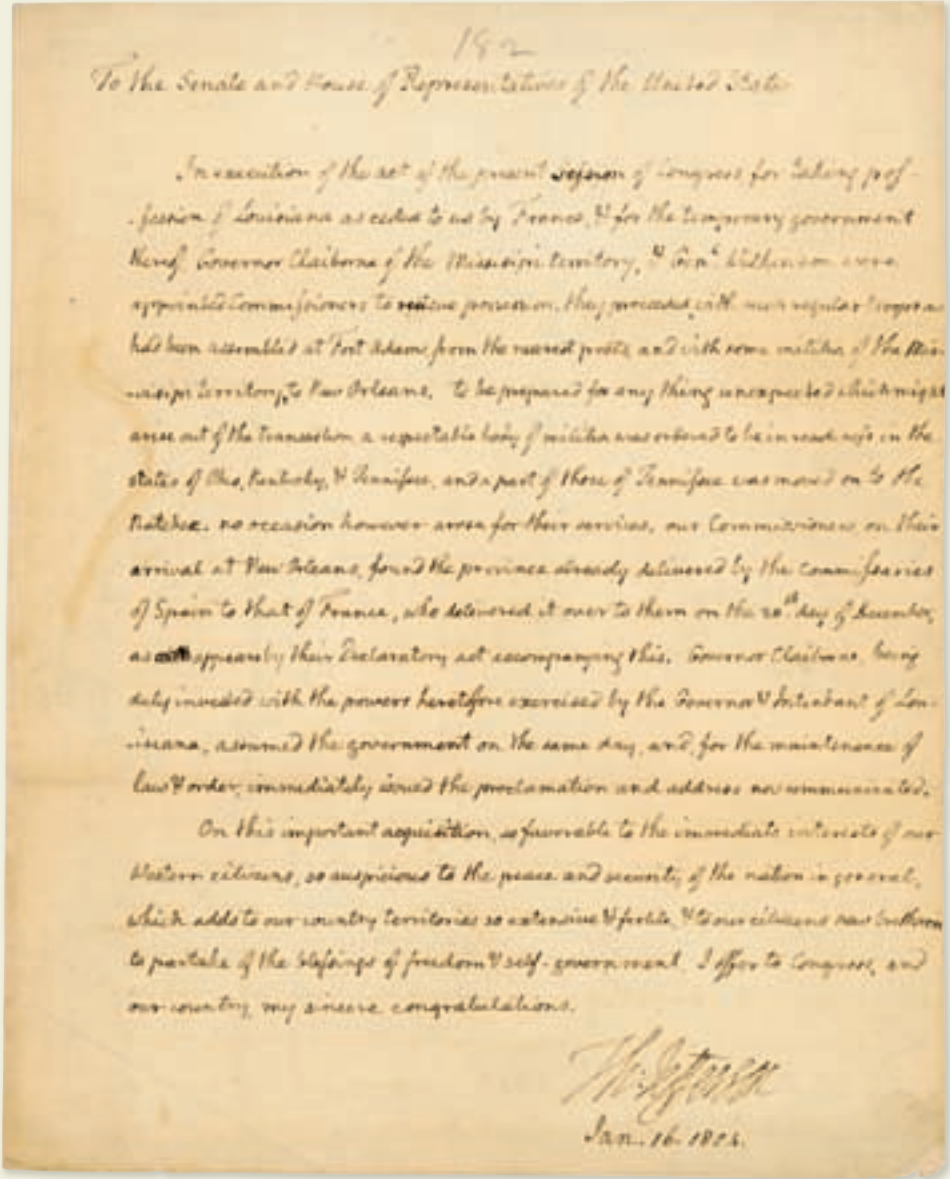 182
To the Senate and House of Representatives of the United States
In execution of the act of the present session of Congress for taking pos-
-session of Louisiana as ceded to us by France, & for the temporary government
thereof, Governor Claiborne of the Missisipi territory, & Genl. Wilkinson were
appointed Commissioners to recieve possession. they proceeded, with such regular troops as
had been assembled at Fort Adams from the nearest posts, and with some militia of the Mis-
-sisipi territory, to New Orleans. to be prepared for any thing unexpected which might
arise out of the transaction, a respectable body of militia was ordered to be in readiness in the
states of Ohio, Kentucky, & Tennissee, and a part of those of Tennissee was moved on to the
Natchez. no occasion however arose for their services. our Commissioners, on their
arrival at New Orleans, found the province already delivered by the Commissaries
of Spain to that of France, who delivered it over to them on the 20th. day of December,
as appears by their Declaratory act accompanying this. Governor Claiborne, being
duly invested with the powers heretofore exercised by the Governor & Intendant of Lou-
-isiana, assumed the government on the same day, and, for the maintenance of
law & order, immediately issued the proclamation and address now communicated.
On this important acquisition, so favorable to the immediate interests of our
Western citizens, so auspicious to the peace and security of the nation in general,
which adds to our country territories so extensive & fertile, & to our citizens new brethren
to partake of the blessings of freedom & self-government, I offer to Congress, and
our country, my sincere congratulations.
Th: Jefferson
Jan. 16. 1804.